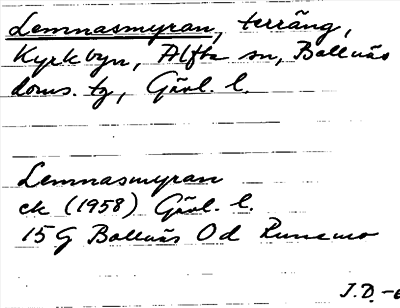 Lemnasmyran, terräng,
Kyrkbyn, Alfta sn, Bollnäs
doms. tg, Gävl. l.
Lemnasmyran
ek (1958) Gävl. l.
15G Bollnäs Od Runemo
J.D.-6